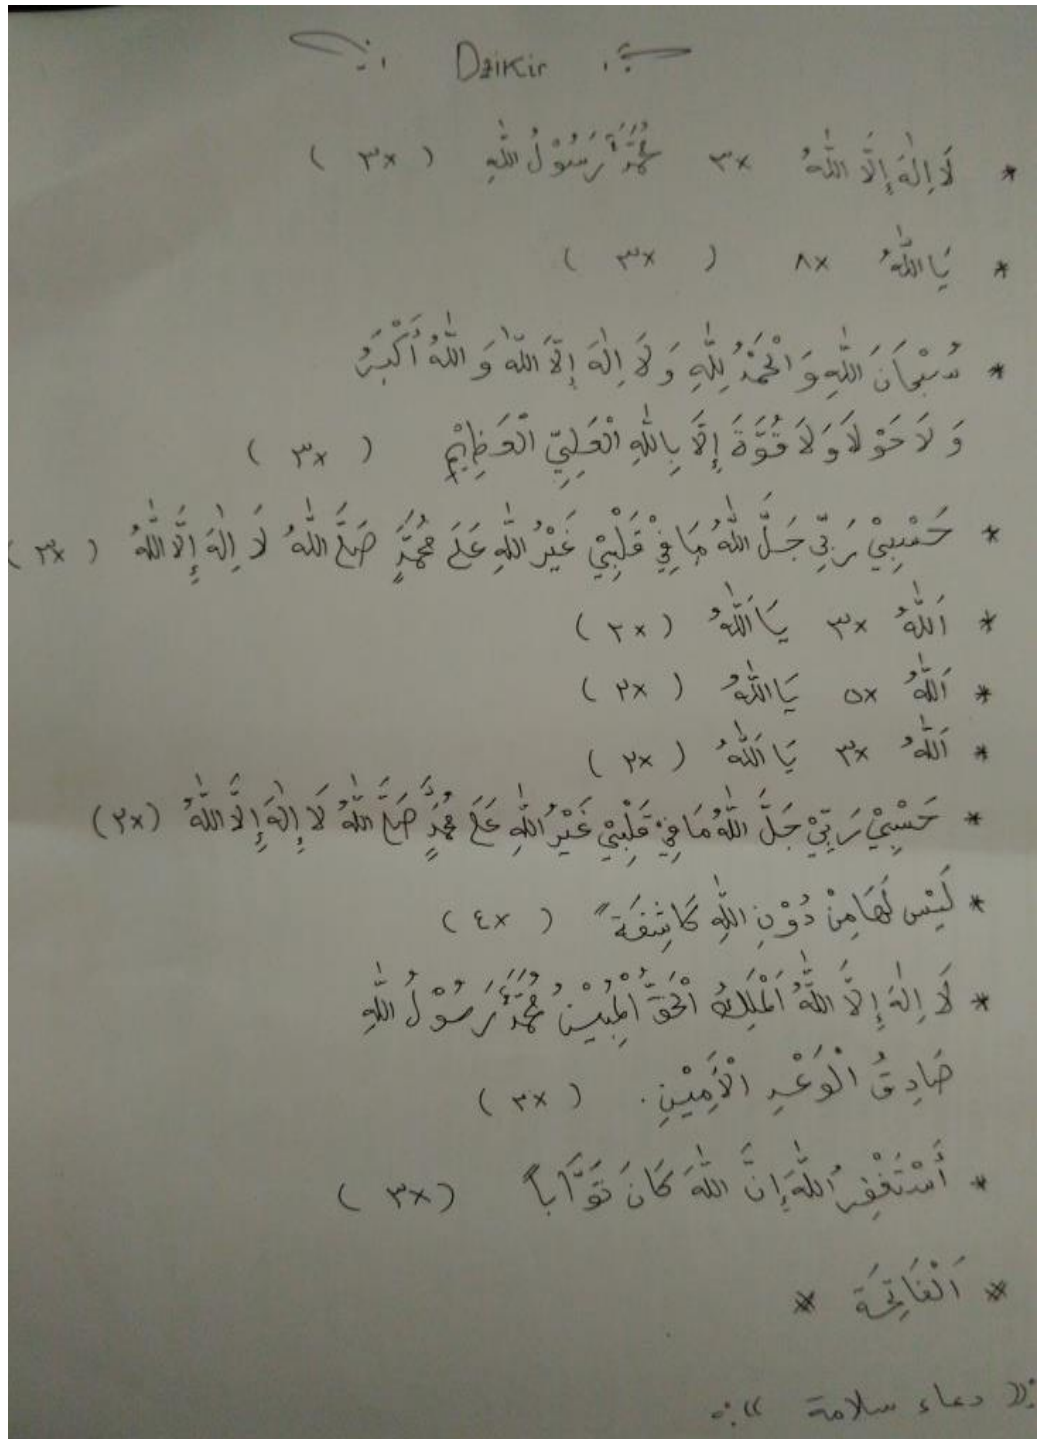 Dzikir
* لَا إِلٰهَ إِلَّا اللّٰهُ ٣x مُحَمَّدٌ رَسُوْلُ اللّٰهِ ( ٣x )
* يَا اللّٰهُ ٨x ( ٣x )
* سُبْحَانَ اللّٰهِ وَ الْحَمْدُ لِلّٰهِ وَ لَا اِلٰهَ إِلَّا اللّٰهُ وَ اللّٰهُ أَكْبَرُ
وَ لَا حَوْلَا وَ لَا قُوَّةَ إِلَّا بِاللّٰهِ الْعَلِيِّ الْعَظِيْمِ ( ٣x )
* حَسْبِيْ رَبِّيْ جَلَّ اللّٰهُ مَا فِيْ قَلْبِيْ غَيْرُ اللّٰهِ عَلَى مُحَمَّدٍ صَلَّ اللّٰهُ لَا اِلٰهَ إِلَّا اللّٰهُ ( ٢x )
* اَللّٰهُ ٣x يَا اَللّٰهُ ( ٢x )
* اَللّٰهُ ٥x يَا اللّٰهُ ( ٢x )
* اَللّٰهُ ٣x يَا اَللّٰهُ ( ٢x )
* حَسْبِيْ رَبِّيْ جَلَّ اللّٰهُ مَا فِيْ قَلْبِيْ غَيْرُ اللّٰهِ عَلَى مُحَمَّدٍ صَلَّ اللّٰهُ لَا إِلٰهَ إِلَّا اللّٰهُ ( ٢x )
* لَيْسَ لَهَا مِنْ دُوْنِ اللّٰهِ كَاشِفَةً ( ٤x )
* لَا اِلٰهَ إِلَّا اللّٰهُ اَلْمَلِكُ الْحَقُّ الْمُبِيْنُ مُحَمَّدٌ رَسُوْلُ اللّٰهِ
صَادِقُ الْوَعْدِ الْأَمِيْنِ . ( ٣x )
* أَسْتَغْفِرُ اللّٰهَ إِنَّ اللّٰهَ كَانَ تَوَّاباً ( ٣x )
* اَلْفَاتِحَة *
دعاء سلامة